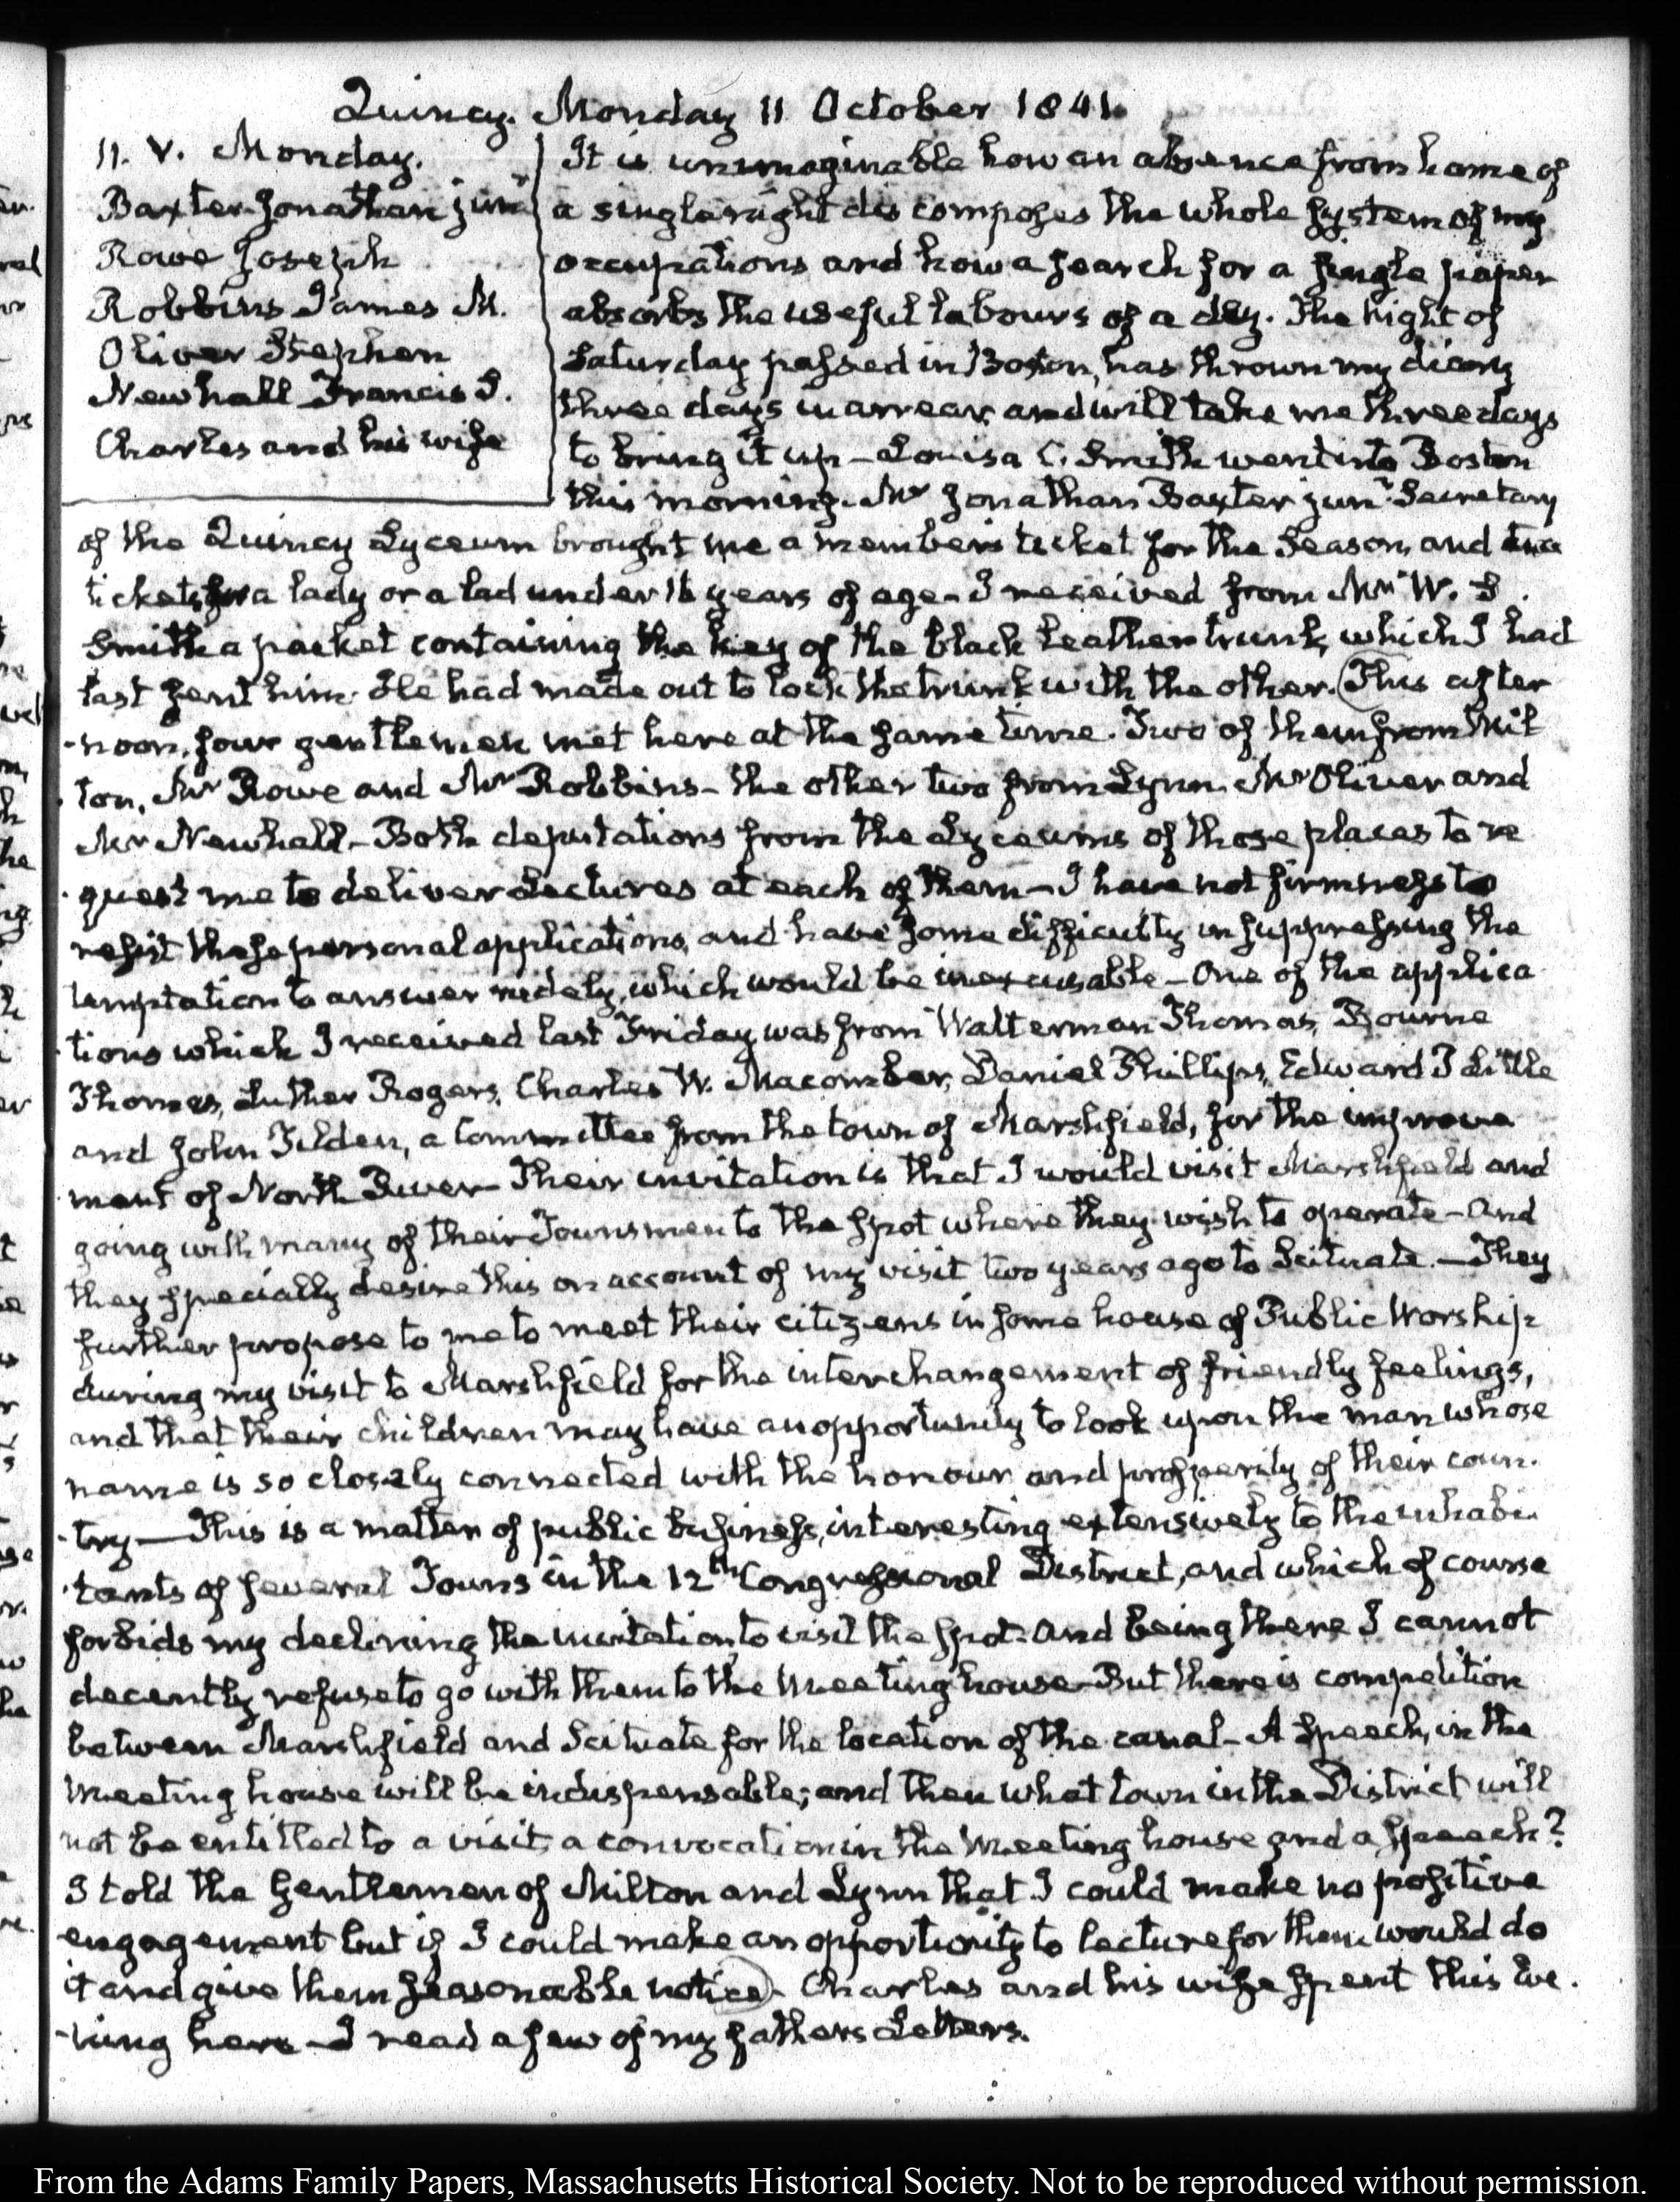 Quincy. Monday 11 October 1841.
11. V. Monday.
Baxter Jonathan junr
Rowe Joseph
Robbins James M.
Oliver Stephen
Newhall Francis S.
Charles and his wife
It is unimaginable how an absence from home of
a single night discomposes the whole system of my
occupations and how a search for a single paper
absorbs the useful labours of a day. The night of
Saturday passed in Boston, has thrown my diary
three days in arrear, and will take me three days
to bring it up – Louisa C. Smith went into Boston
this morning. Mr Jonathan Baxter junr. Secretary
of the Quincy Lyceum brought me a members ticket for the Season, and two
tickets for a lady or a lad under 16 years of age – I received from Mr W. S.
Smith a packet containing the key of the black leather trunk, which I had
last sent him. He had made out to lock the trunk with the other. (This after
-noon, four gentlemen met here at the same time. Two of them from Mil
-ton, Mr Rowe and Mr Robbins – the other two from Lynn. Mr Oliver and
Mr Newhall – Both deputations from the Lyceums of those places to re
-quest me to deliver Lectures at each of them – I have not firmness to
resist these personal applications, and have some difficulty in suppressing the
temptation to answer rudely, which would be inexcusable – One of the applica
-tions which I received last Friday was from Walterman Thomas, Bourne
Thomas, Luther Rogers, Charles W. Macomber, Daniel Phillips, Edward P Little
and John Tilden, a Committee from the town of Marshfield, for the improve
-ment of North River – Their invitation is that I would visit Marshfield and
going with many of their Townsmen to the spot where they wish to operate – And
they specially desire this on account of my visit two years ago to Scituate. – They
further propose to me to meet their citizens in some house of Public Worship
during my visit to Marshfield for the interchangement of friendly feelings,
and that their children may have an opportunity to look upon the man whose
name is so closely connected with the honour and prosperity of their coun-
-try – This is a matter of public business, interesting extensively to the inhabi
-tants of several Towns in the 12th Congressional District, and which of course
forbids my declining the invitation to visit the spot. And being there I cannot
decently refuse to go with them to the Meeting house – But there is competition
between Marshfield and Scituate for the location of the canal – A Speech, in the
Meeting house will be indispensable; and then what town in the District will
not be entitled to a visit, a convocation in the Meeting house and a speech?
I told the Gentlemen of Milton and Lynn that I could make no positive
engagement but if I could make an opportunity to lecture for them would do
it and give them seasonable notice) – Charles and his wife spent this Eve.
-ning here – I read a few of my fathers Letters.
From the Adams Family Papers, Massachusetts Historical Society. Not to be reproduced without permission.